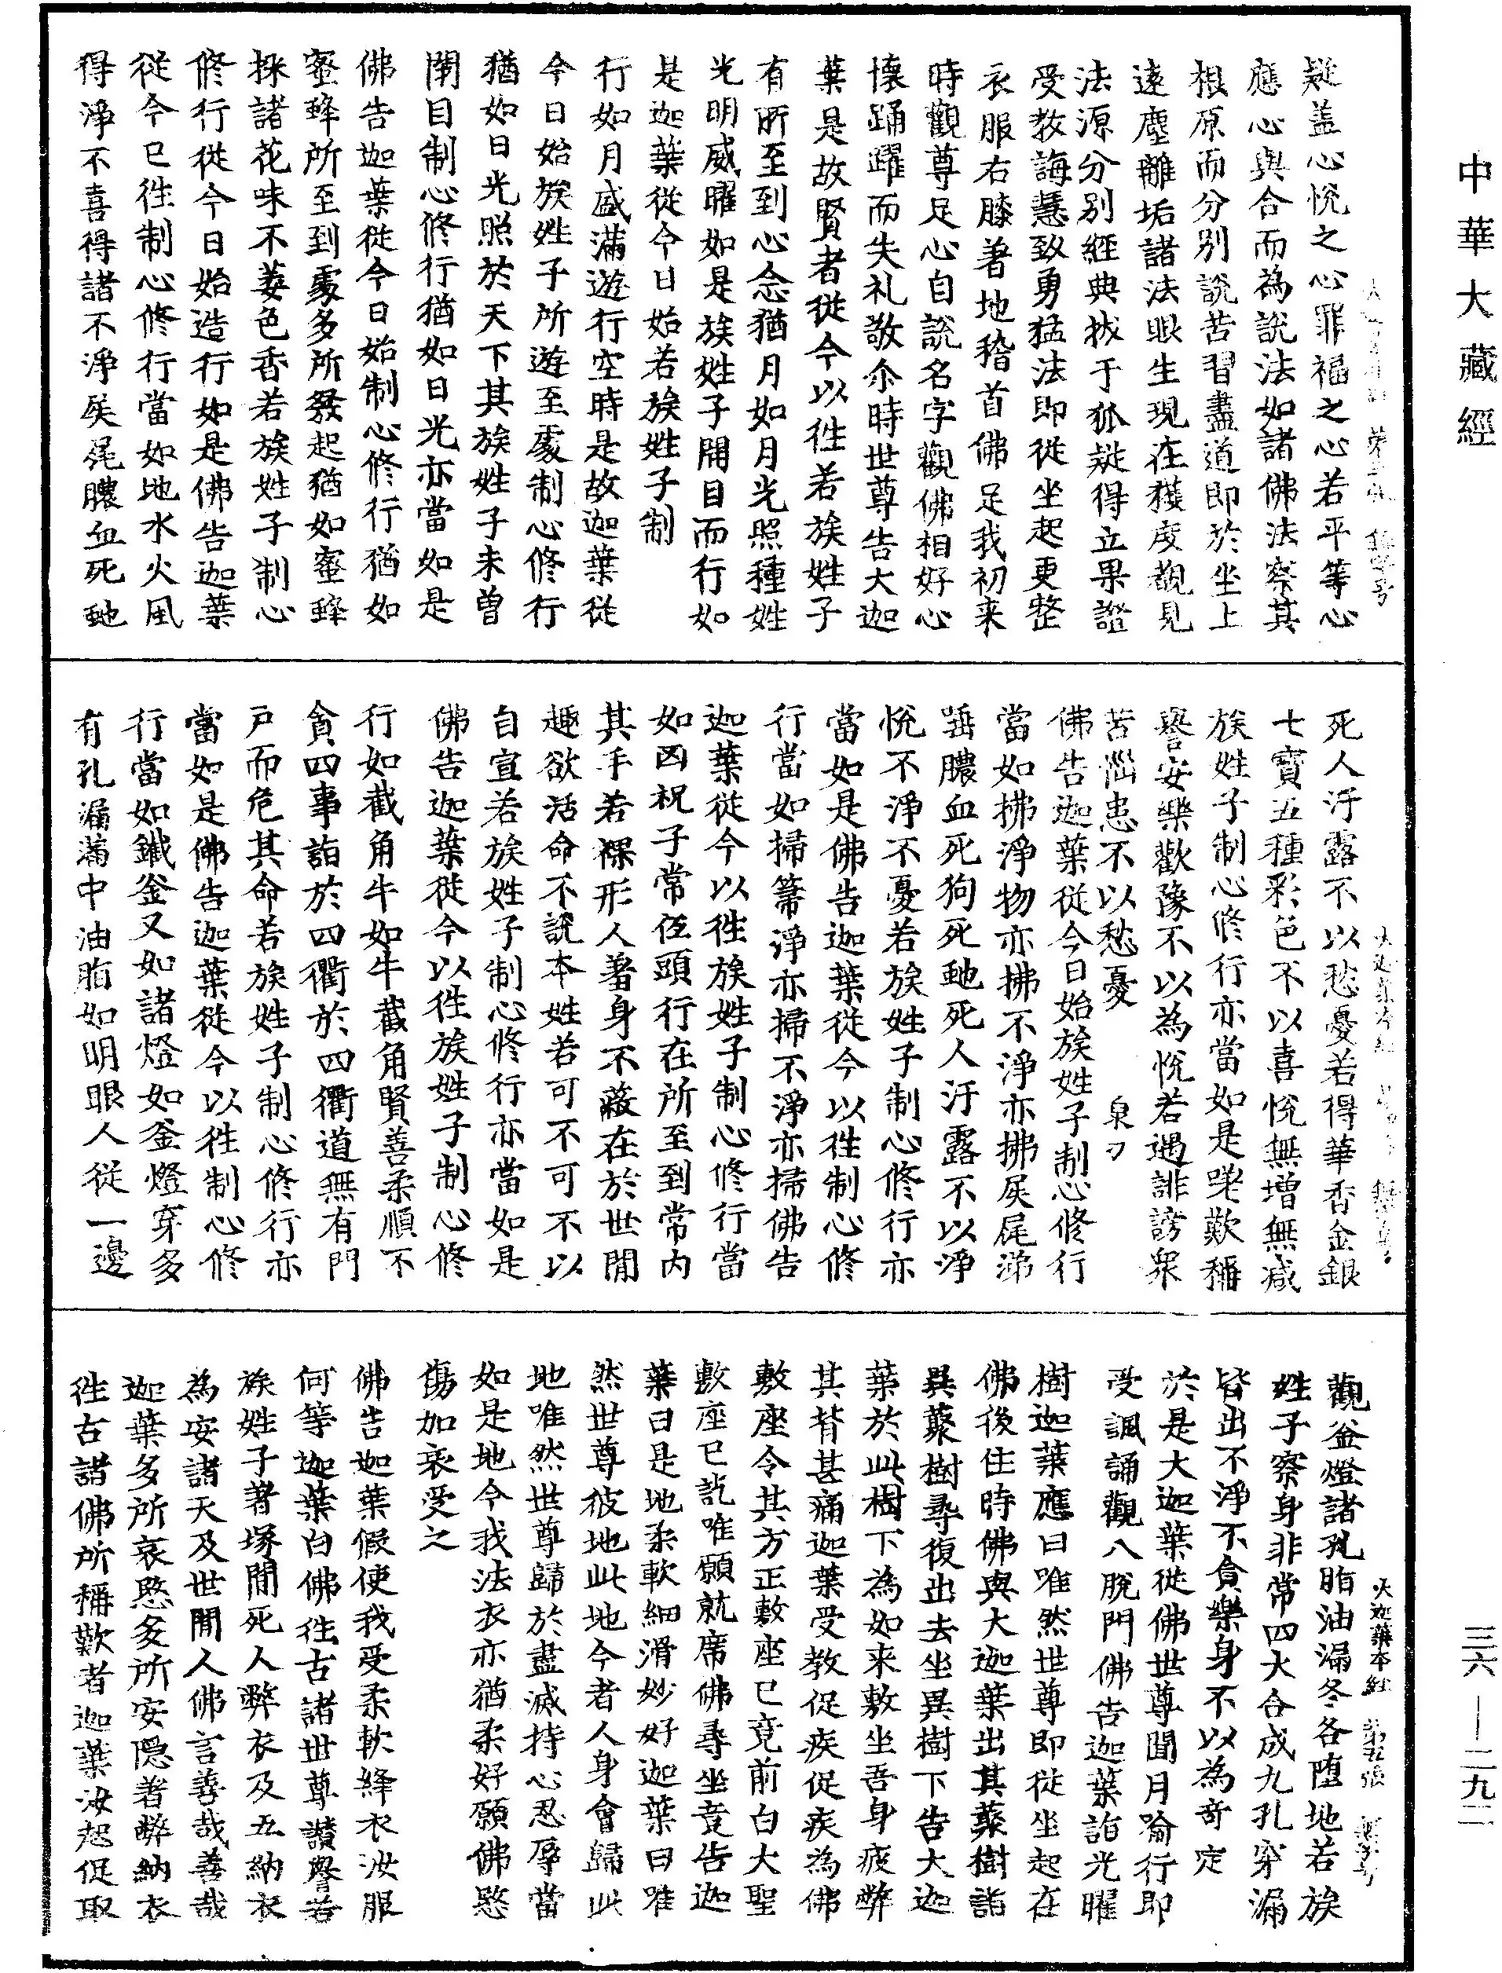 中華大藏經
疑盖心恱之心罪福之心若平等心
應心與合而為說法如諸佛法察其
根原而分别說苦習盡道即於坐上
遠塵離垢諸法眼生現在獲度覩見
法源分别經典拔于狐疑得立果證
受教誨慧致勇猛法即從坐起更整
衣服右膝著地稽首佛足我初来
時觀尊足心自說名字觀佛相好心
懐踊躍而失礼敬尒時世尊告大迦
葉是故賢者從今以徃若族姓子
有所至到心念猶月如月光照種姓
光明威曜如是族姓子開目而行如
是迦葉從今日始若族姓子制
行如月盛滿遊行空時是故迦葉從
今日始族姓子所遊至處制心修行
猶如日光照於天下其族姓子未曽
閉目制心修行猶如日光亦當如是
佛告迦葉從今日始制心修行猶如
蜜蜂所至到處多所發起猶如蜜蜂
採諸花味不萎色香若族姓子制心
修行從今日始造行如是佛告迦葉
從今已徃制心修行當如地水火風
得淨不喜得諸不淨屎尾膿血死虵
死人汙露不以愁憂若得華香金銀
七寶五種彩色不以喜恱無增無减
族姓子制心修行亦當如是嗟歎稱
譽安樂歡豫不以為恱若遇誹謗衆
苦惱患不以愁憂
佛告迦葉從今日始族姓子制心修行
當如拂淨物亦拂不淨亦拂屎尾涕
唾膿血死狗死虵死人汙露不以淨
恱不淨不憂若族姓子制心修行亦
當如是佛告迦葉從今以徃制心修
行當如掃箒淨亦掃不淨亦掃佛告
迦葉從今以徃族姓子制心修行當
如凶祝子常低頭行在所至到常内
其手若裸形人著身不蔽在於世間
趣欲活命不說本姓若可不可不以
自宣若族姓子制心修行亦當如是
佛告迦葉從今以徃族姓子制心修
行如截角牛如牛截角賢善柔順不
貪四事詣於四衢於四衢道無有門
戸而危其命若族姓子制心修行亦
當如是佛告迦葉從今以徃制心修
行當如鐵釜又如諸燈如釜燈穿多
有孔漏滿中油脂如明眼人從一邊
大迦葉本經 第五張
觀釜燈諸孔脂油漏冬各堕地若族
姓子察身非常四大合成九孔穿漏
皆出不淨不貪樂身不以為奇定
於是大迦葉從佛世尊聞月喻行即
受諷誦觀八脫門佛告迦葉詣光曜
樹迦葉應曰唯然世尊即從坐起在
佛後住時佛與大迦葉出其藂樹詣
異藂樹尋復出去坐異樹下告大迦
葉於此樹下為如来敷坐吾身疲弊
其背甚痛迦葉受教促疾促疾為佛
敷座令其方正敷座已竟前白大聖
敷座已訖唯願就席佛尋坐竟告迦
葉曰是地柔軟細滑妙好迦葉曰唯
然世尊彼地此地今者人身會歸此
地唯然世尊歸於盡滅持心忍辱當
如是地今我法衣亦猶柔好願佛愍
傷加哀受之
佛告迦葉假使我受柔軟絳衣汝服
何等迦葉白佛徃古諸世尊讃譽若
族姓子著塚間死人弊衣及五納衣
為安諸天及世間人佛言善哉善哉
迦葉多所哀愍多所安隠著弊納衣
徃古諸佛所稱歎者迦葉汝起促取
三六——二九二